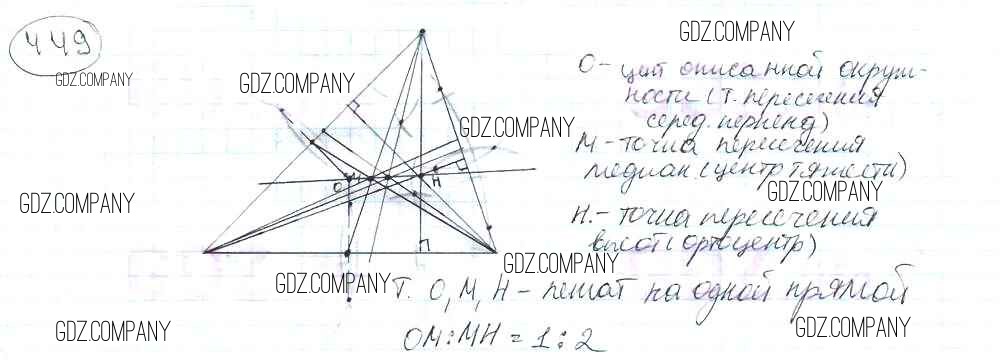 449
GDZ.COMPANY
GDZ.COMPANY
GDZ.COMPANY
GDZ.COMPANY
GDZ.COMPANY
O - цент описанной окруж-
ности (т. пересечения
серед. перпенд)
M - точка пересечения
медиан. (центр тяжести)
GDZ.COMPANY
GDZ.COMPANY
H. - точка пересечения
высот (ортоцентр)
O M H
GDZ.COMPANY
GDZ.COMPANY
Т. O, M, H - лежат на одной прямой
GDZ.COMPANY
OM:MH = 1:2
GDZ.COMPANY